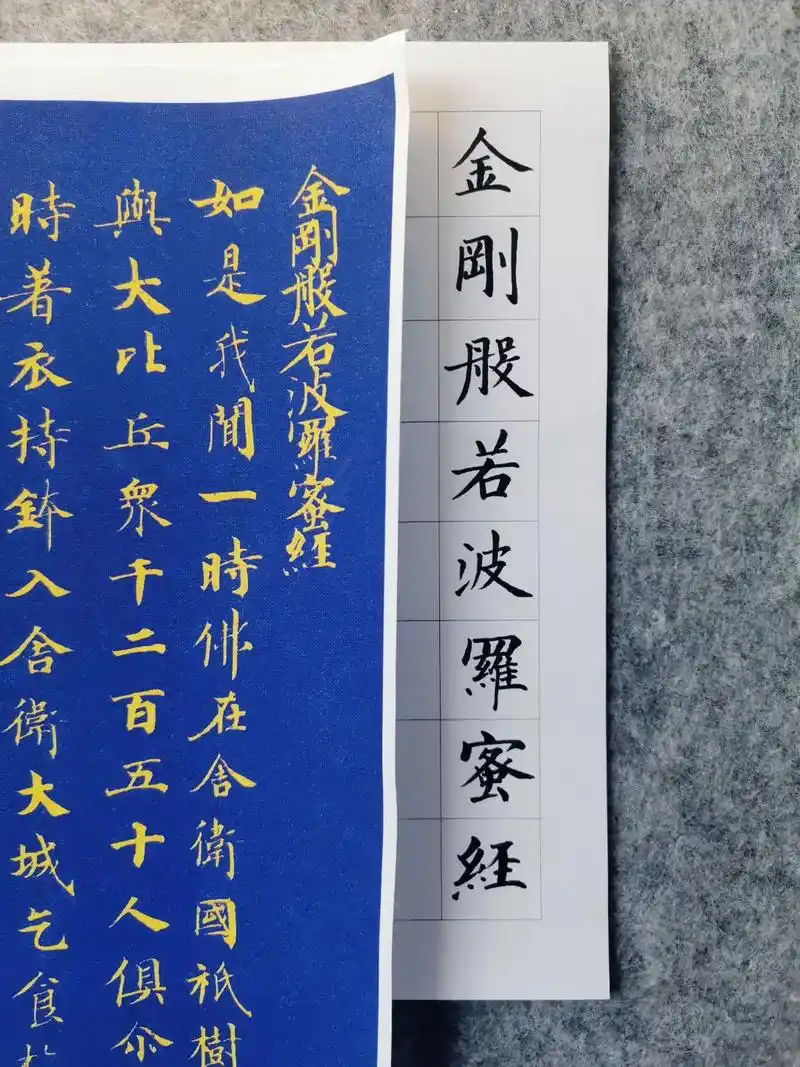 金剛般若波羅蜜經
金剛般若波羅蜜經
如是我聞一時佛在舍衛國祇樹
與大比丘衆千二百五十人俱尒
時著衣持鉢入舍衛大城乞食於